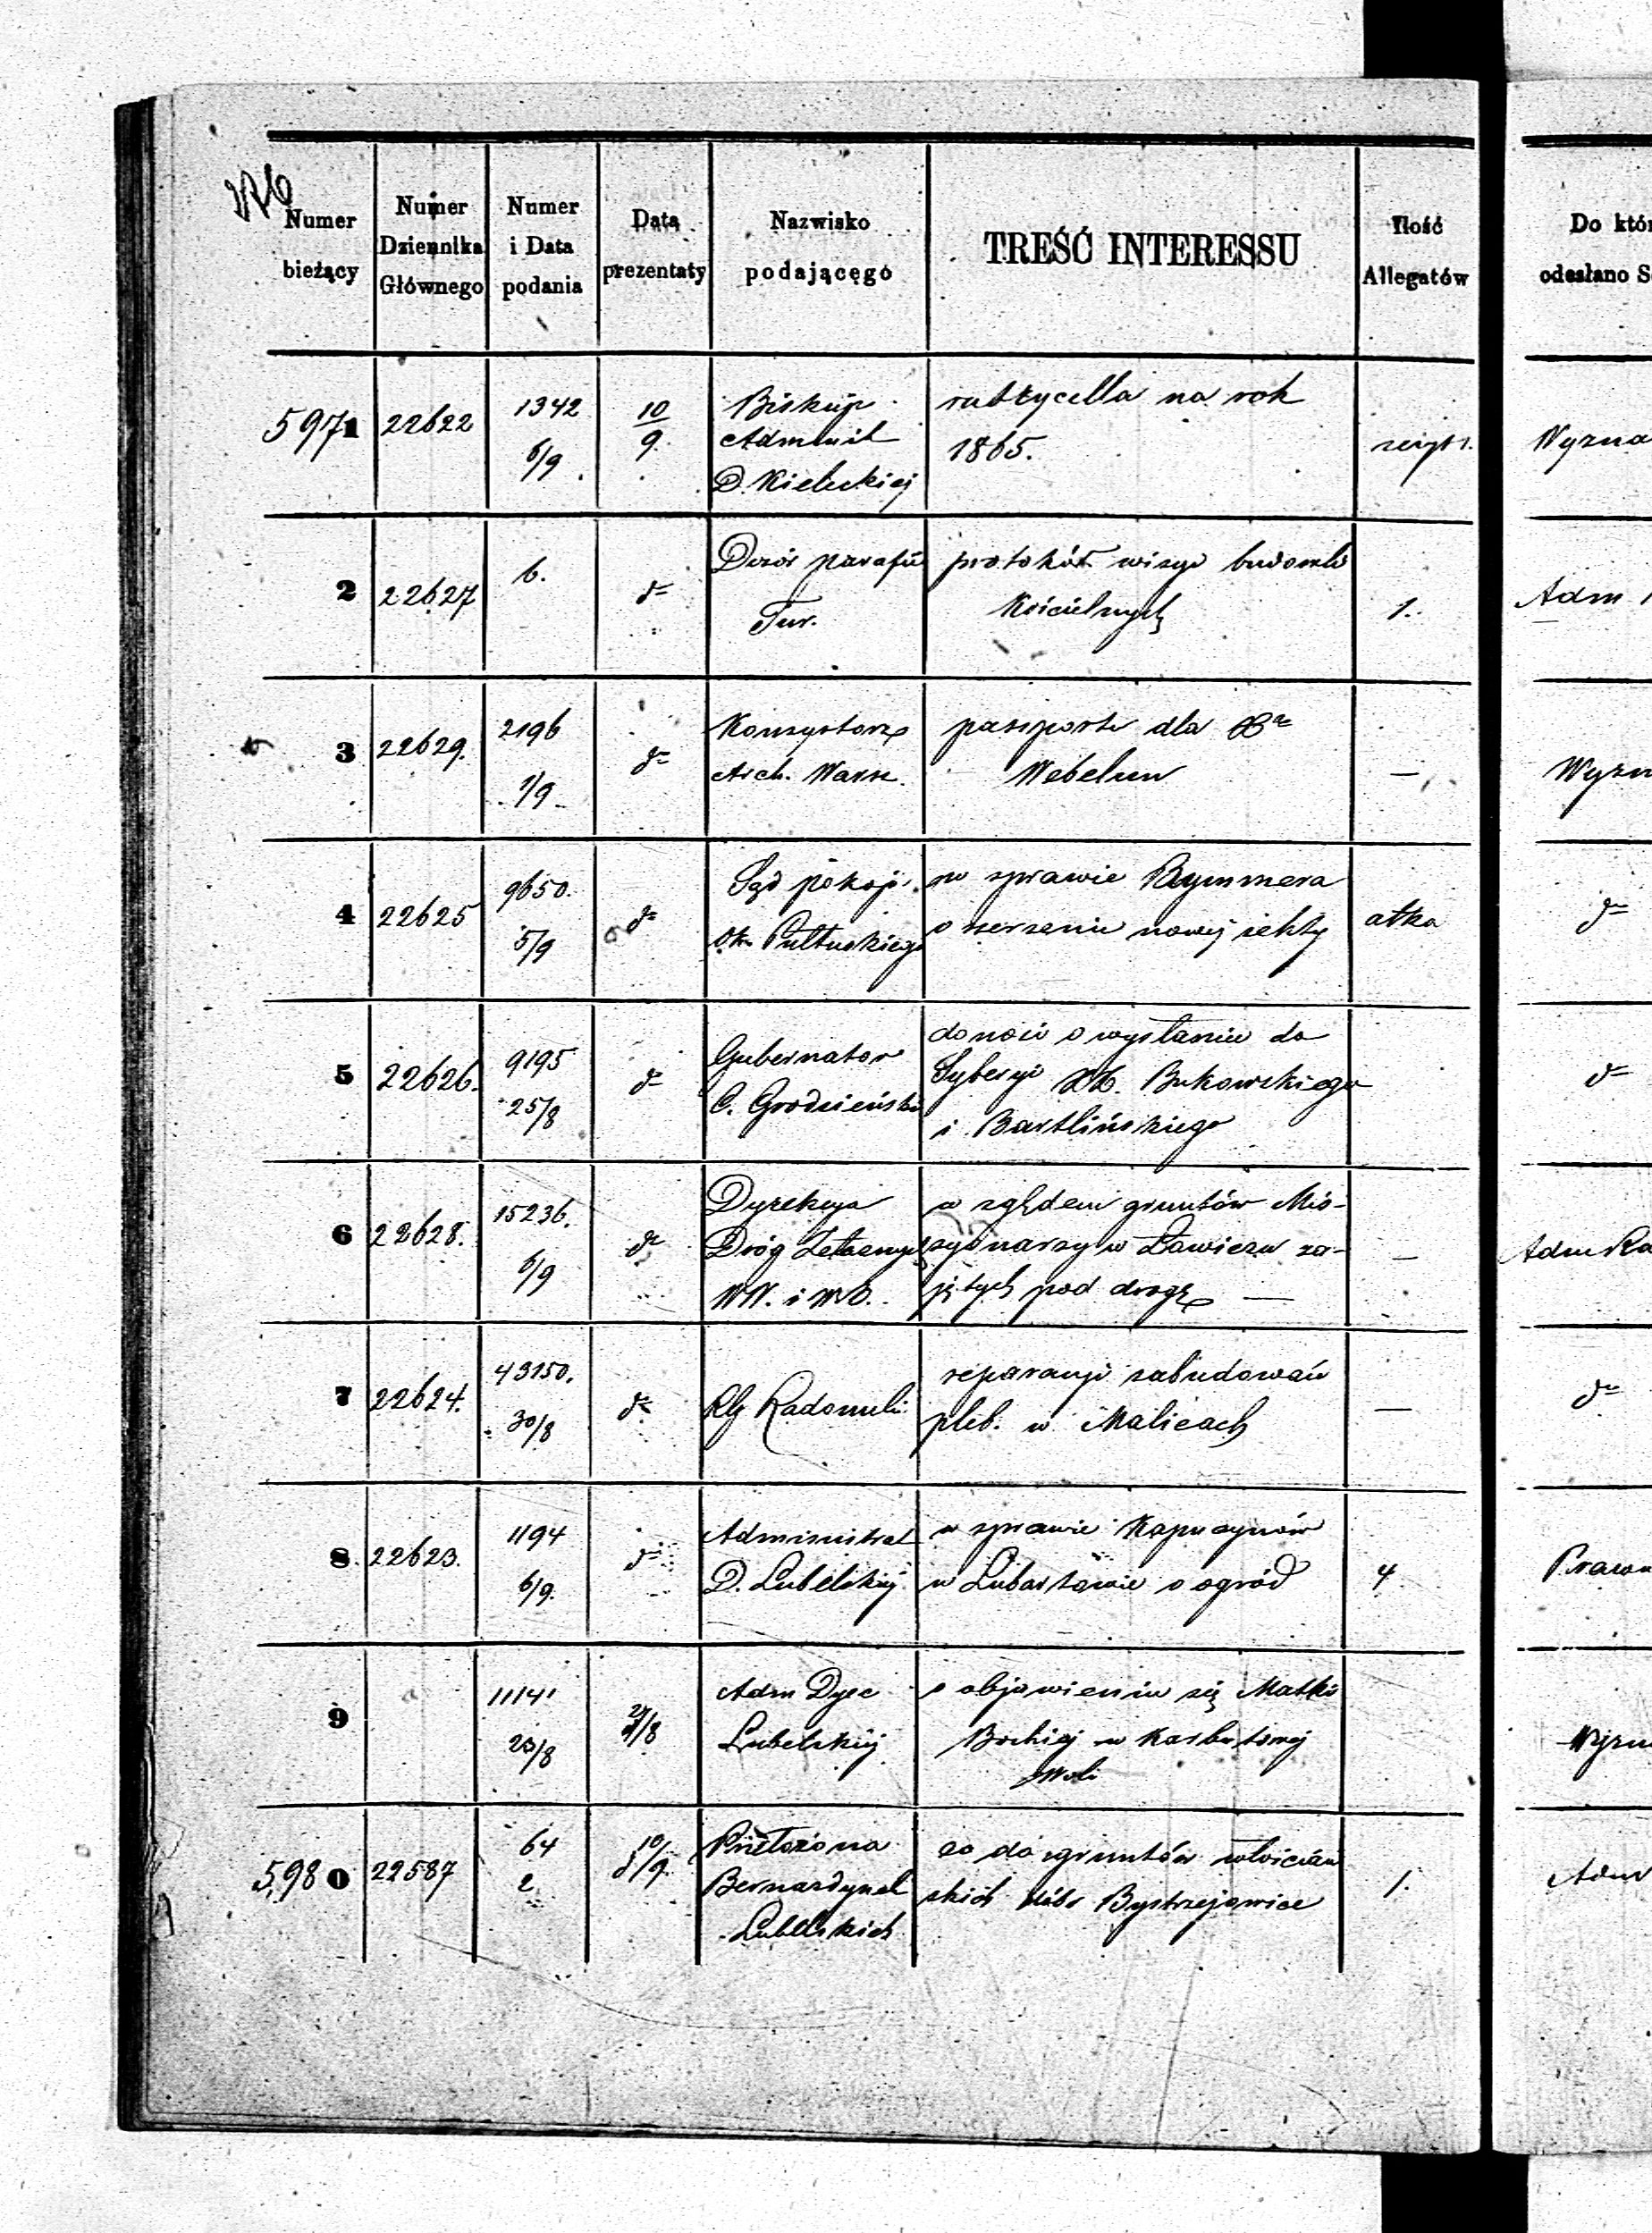 Numer
bieżący
Numer
Dziennika
Głównego
Numer
i Data
podania
Data
prezentaty
Nazwisko
podającego
TREŚĆ INTERESSU
Ilość
Allegatów
Do któr
odesłano S
5971
22622
1342
6/9
10
9
Biskup
Administ
D. Kieleckiej
rubrycella na rok
1865.
Wyzna
2
22627
6.
dº
Dozór parafii
Tur.
protokół wizyi budowli
Kościelnych
1.
Adm
3
22629.
2196
1/9
dº
Konsystorz
Arch. Warsz.
passportu dla
Wyzn
4
22625
9650.
5/9
dº
Sąd pokoju
Ok. Pułtuskiego
w sprawie Rymmera
o szerzenie nowej sekty
atka
dº
5
22626.
9195
25/8
dº
Gubernator
C. Grodzieński
donosi o wysłaniu do
Syberyi XX. Bukowskiego
i Bartlińskiego
dº
6
22628.
15236.
6/9
dº
Dyrekcya
Dróg Żelaznych
WW. i WB.
względem gruntów Mis-
syonarzy w Zawiercu za-
jętych pod drogę —
—
Adm Ra
7
22624.
43150.
30/8
dº
RG Radomski
reparacyi zabudowań
pleb. w Malicach
—
dº
8
22623.
1194
6/9.
dº
Administrat
D. Lubelskiej
w sprawie Kapucynów
w Lubartowie o ogród
4
Prawn
9
11141
23/8
Adm Dyec
Lubelskiej
o objawieniu się Matki
Boskiej w
Woli
Wyzn
5980
22587
64
2
10/9
Przełożona
Bernardynek
Lubelskich
co do gruntów włościań
skich dóbr Bystrzejowice
1.
Adm